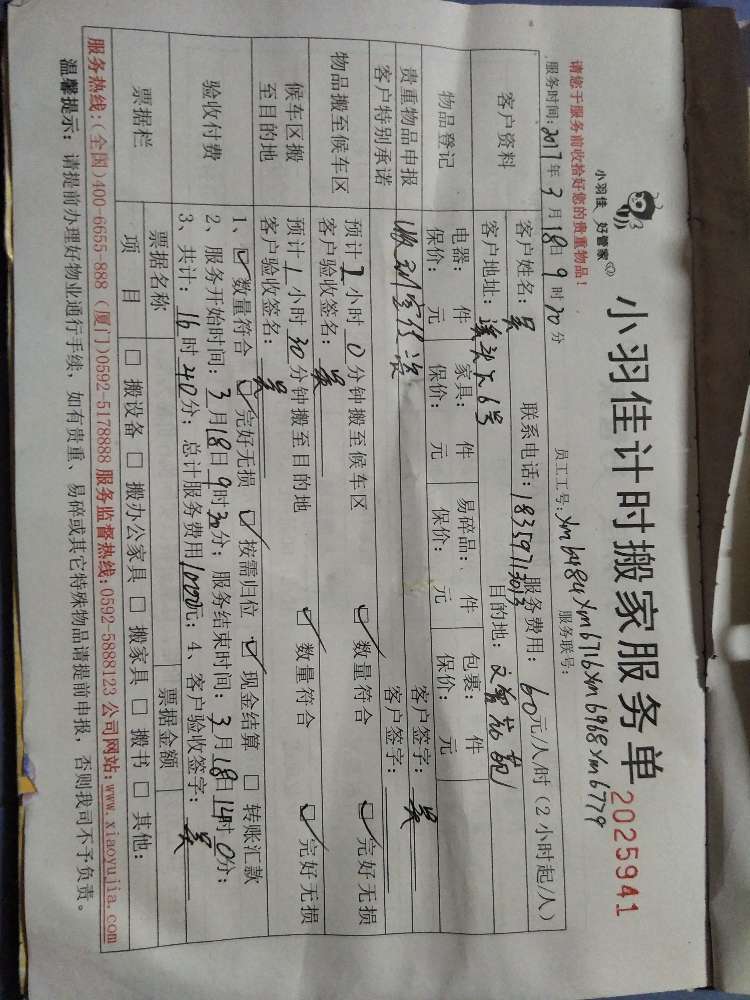 小羽佳 好管家
小羽佳计时搬家服务单 2025941
请您于服务前收拾好您的贵重物品！
员工工号：xm6484 xm6716 xm6968 xm6779
服务时间：2017年3月18日9时30分
服务联号：
客户资料
客户姓名：吴 联系电话：18359713013 服务费用：60元/人/时（2小时起/人）
客户地址： 6号 目的地：
物品登记
电器： 件 家具： 件 易碎品： 件 包裹： 件
保价： 元 保价： 元 保价： 元 保价： 元
贵重物品申报 客户签字：
客户特别承诺 客户签字：吴
物品搬至候车区
预计2小时0分钟搬至候车区 ☑数量符合 ☑完好无损
客户验收签名：吴
候车区搬至目的地
预计1小时30分钟搬至目的地 ☑数量符合 ☑完好无损
客户验收签名：吴
验收付费
1、☑数量符合 ☑完好无损 ☑按需归位 ☑现金结算 □转账汇款
2、服务开始时间：3月18日9时30分；服务结束时间：3月18日14时0分；
3、共计：16时40分；总计服务费用1000元；4、客户验收签字：吴
票据栏
票据名称 票据金额
项目 □搬设备 □搬办公家具 □搬家具 □搬书 □其他：
服务热线：（全国）400-6655-888（厦门）0592-5178888 服务监督热线：0592-5888123 公司网站：www.xiaoyujia.com
温馨提示：请提前办理好物业通行手续，如有贵重、易碎或其它特殊物品请提前申报，否则我司不予负责。